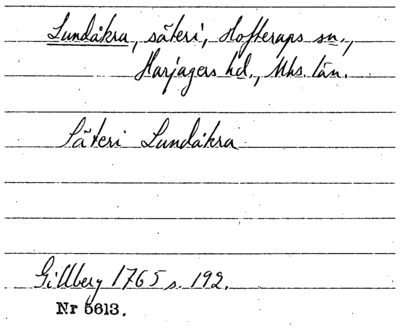 Lundåkra, säteri, Hofterups sn.,
Harjagers hd., Mhs. län.
Säteri Lundåkra
Gillberg 1765 s. 192.
Nr 5613.